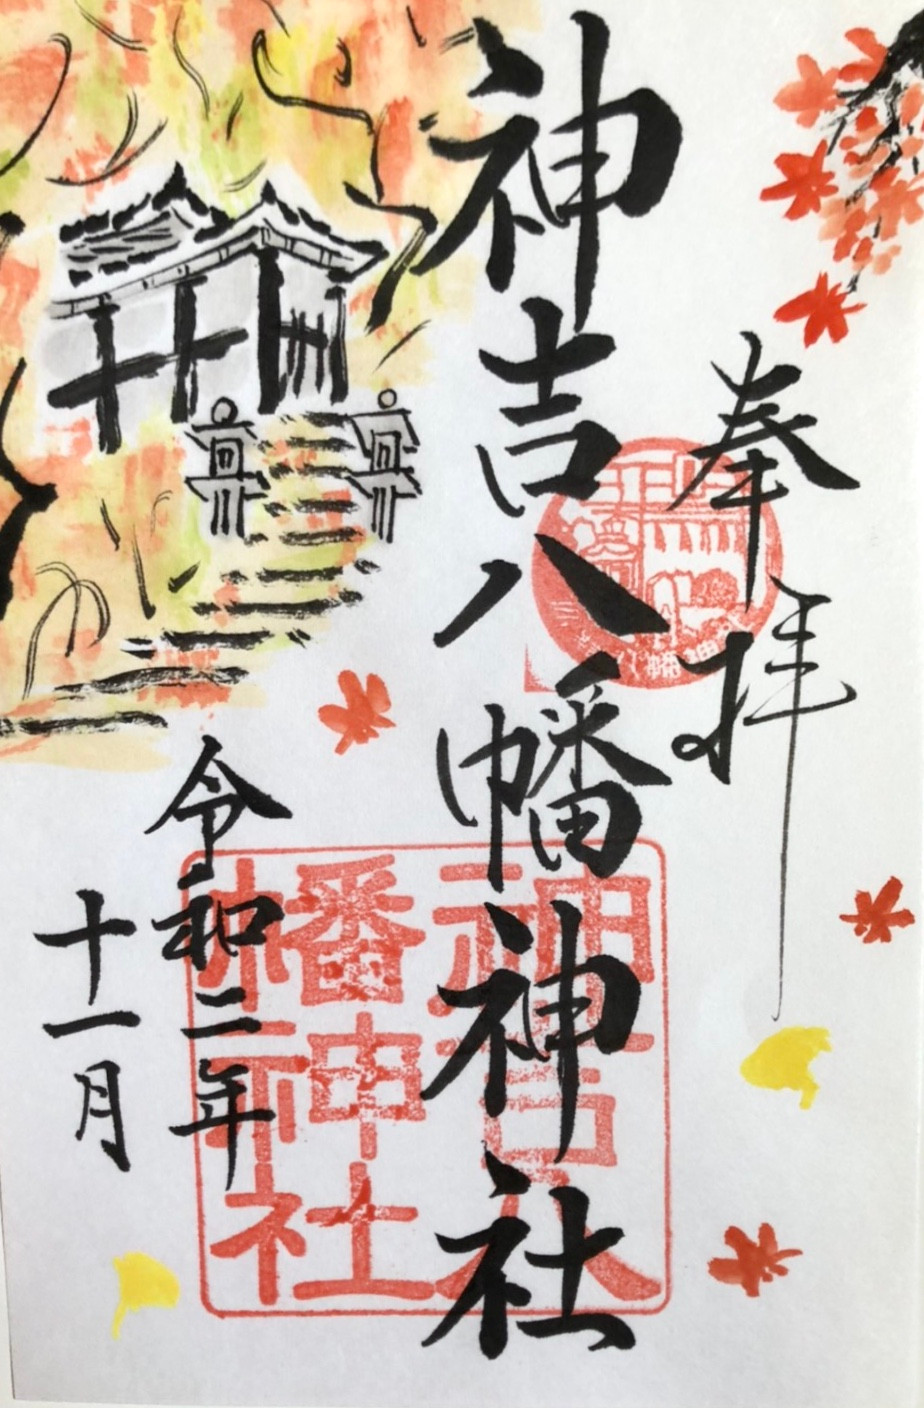 奉拝
神吉八幡神社
令和二年
十一月
神吉八
幡神社